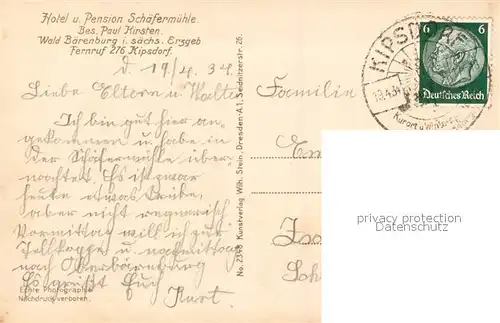 Hotel u. Pension Schäfermühle.
Bes. Paul Kirsten.
Wald Bärenburg i. sächs. Erzgeb
Fernruf 276 Kipsdorf.
d. 19/4. 34.
Liebe Eltern u Walter
Ich bin gut hier an-
gekommen u habe in
der Schäfermühle über-
nachtet. Es ist zwar
heute etwas trübe,
aber nicht regnerisch
Vormittag will ich zur
Tellkoppe u nachmittag
nach Oberbärenburg
Es grüßt Euch
Kurt.
Echte Photographie
Nachdruck verboten.
No. 2348 Kunstverlag Wilh. Stein, Dresden-A.1, Seidnitzerstr. 26.
Familie
KIPSDORF
19.4.34
Kurort u.
6 6
Deutsches Reich
privacy protection
oldthing.de